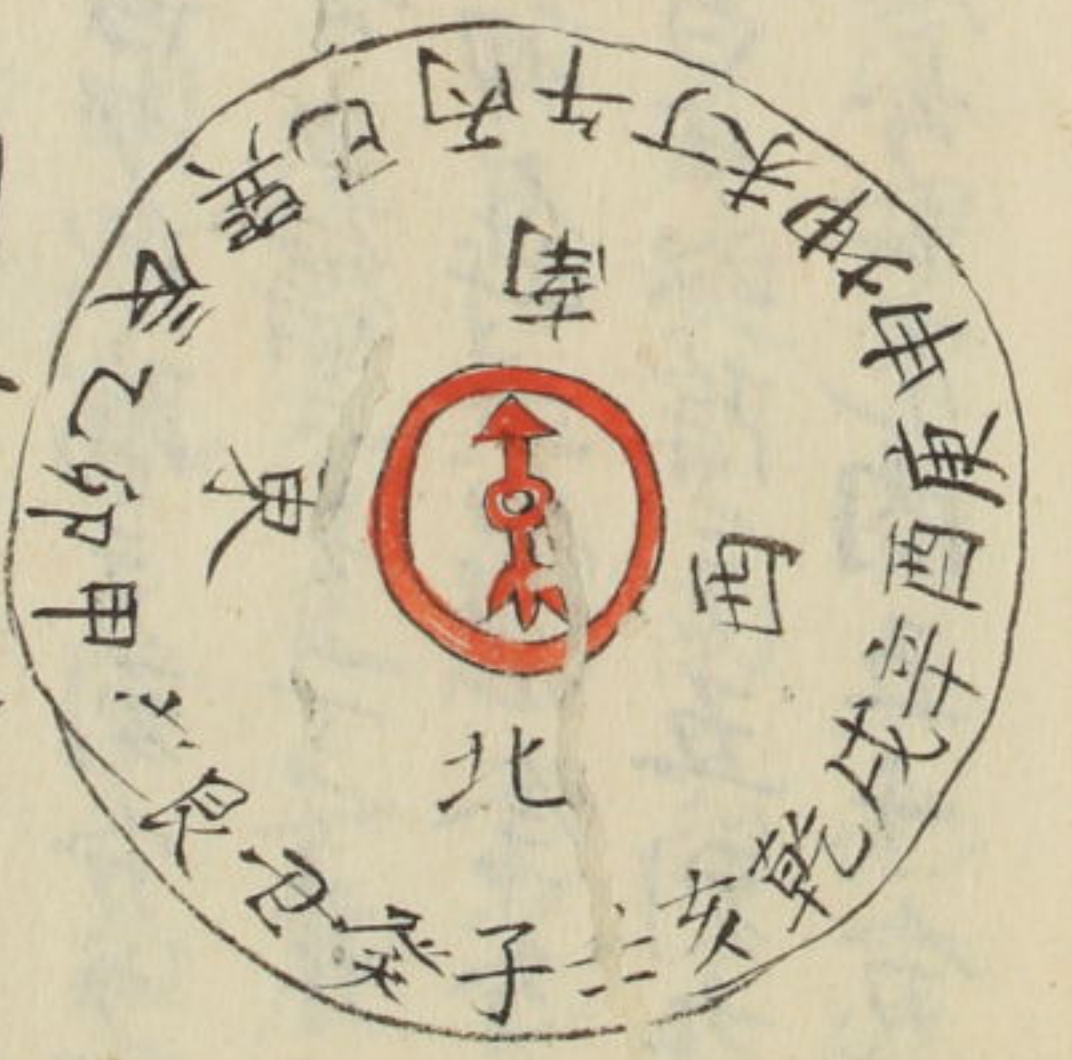 子癸丑艮甲卯乙辰巽巳丙午丁未坤申庚酉辛戌乾亥
南
東
西
北